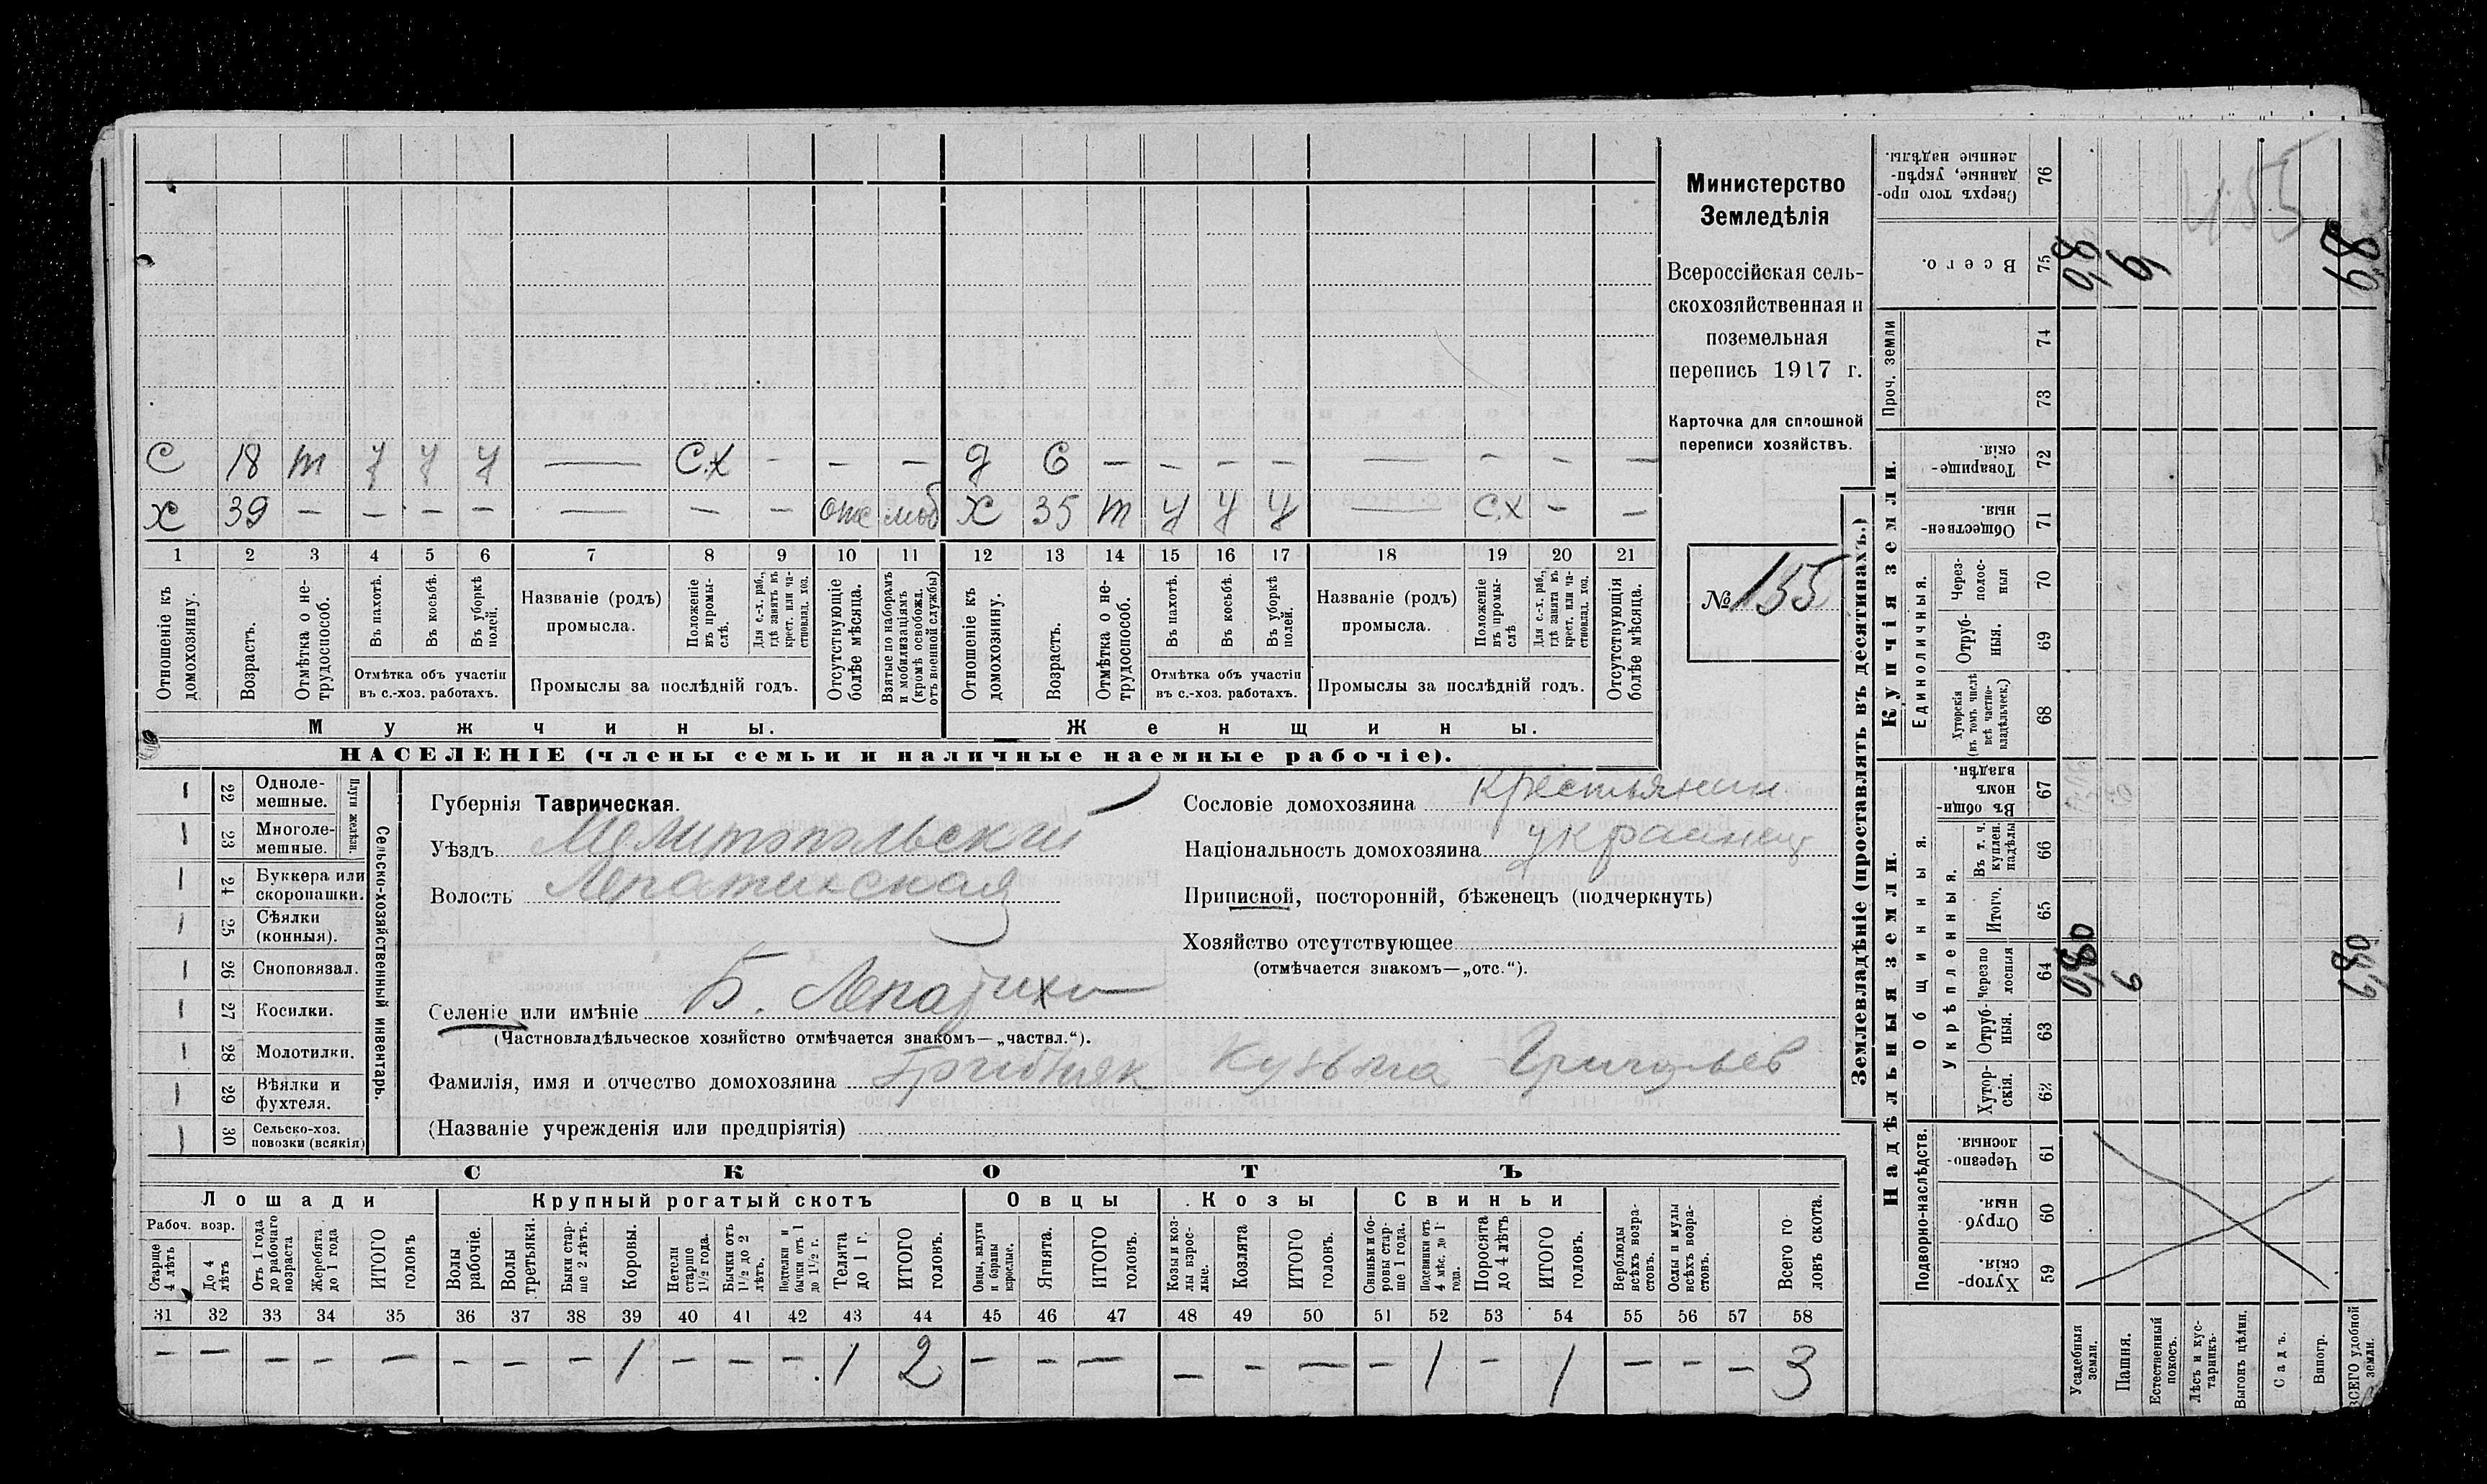 Министерство
Земледѣлія
Всероссійская сель-
скохозяйственная и
поземельная
перепись 1917 г.
Карточка для сплошной
переписи хозяйствъ.
№ 155
С 18 т у у у — с.х - - — д 6 — - - - — - - —
х 39 — - - - — - - отс моб х 35 т у у у — с.х - —
1 2 3 4 5 6 7 8 9 10 11 12 13 14 15 16 17 18 19 20 21
Отношеніе къ домохозяину.
Возрастъ.
Отмѣтка о не-трудоспособ.
Въ пахотѣ.
Въ косьбѣ.
Въ уборкѣ полей.
Отмѣтка объ участіи
въ с.-хоз. работахъ.
Названіе (родъ)
промысла.
Положеніе въ промы-слѣ.
Для с.-х. раб., гдѣ занять въ крест. или ча-стновлад. хоз.
Промыслы за послѣдній годъ.
Отсутствующіе болѣе мѣсяца.
Взятые по наборамъ и мобилизаціямъ (кромѣ освобожд. отъ военной службы)
Отношеніе къ домохозяину.
Возрастъ.
Отмѣтка о не-трудоспособ.
Въ пахотѣ.
Въ косьбѣ.
Въ уборкѣ полей.
Отмѣтка объ участіи
въ с.-хоз. работахъ.
Названіе (родъ)
промысла.
Положеніе въ промы-слѣ
Для с.-х. раб., гдѣ занята въ крест. или ча-стновлад. хоз.
Промыслы за послѣдній годъ.
Отсутствующія болѣе мѣсяца.
Мужчины.
Женщины.
НАСЕЛЕНІЕ (члены семьи и наличные наемные рабочіе).
22 Одноле-мешные.
23 Многоле-мешные.
Плуги желѣзн.
24 Буккера или скоропашки.
25 Сѣялки (конныя).
26 Сноповязал.
27 Косилки.
28 Молотилки.
29 Вѣялки и фухтеля.
30 Сельско-хоз. повозки (всякія)
Сельско-хозяйственный инвентарь.
Губернія Таврическая.
Уѣздъ Мелитопольский
Волость Лепатихская
Селеніе или имѣніе Б. Лепатиха
(Частновладѣльческое хозяйство отмѣчается знакомъ—„частвл.“).
Фамилія, имя и отчество домохозяина Грибняк Кузьма Григорьев
(Названіе учрежденія или предпріятія)
Сословіе домохозяина крестьянин
Національность домохозяина украинец
Приписной, посторонній, бѣженецъ (подчеркнуть)
Хозяйство отсутствующее
(отмѣчается знакомъ—„отс.“).
СКОТЪ
Лошади
Крупный рогатый скотъ
Овцы
Козы
Свиньи
Рабоч. возр.
Старше 4 лѣтъ
До 4 лѣтъ
Отъ 1 года до рабочаго возраста
Жеребята до 1 года
ИТОГО головъ
Волы рабочіе.
Волы третьяки.
Быки стар-ше 2 лѣтъ.
Коровы.
Нетели старше 1½ года.
Бычки отъ 1½ до 2 лѣтъ.
Подтелки и бычки отъ 1 до 1½ г.
Телята до 1 г.
ИТОГО головъ.
Овцы, валухи и бараны взрослые.
Ягнята.
ИТОГО головъ.
Козы и коз-лы взрос-лые.
Козлята
ИТОГО головъ.
Свиньи и бо-ровы стар-ше 1 года.
Подсвинки отъ 4 мѣс. до 1 года.
Поросята до 4 лѣтъ
ИТОГО головъ.
Верблюды всѣхъ возра-стовъ.
Ослы и мулы всѣхъ возра-стовъ.
Всего го-ловъ скота.
31 32 33 34 35 36 37 38 39 40 41 42 43 44 45 46 47 48 49 50 51 52 53 54 55 56 57 58
— — — - — - - - 1 - - - 1 2 — - — — - — - 1 - 1 — - — 3
Землевладѣніе (проставлять въ десятинахъ.)
Купчія земли.
Надѣльныя земли.
Сверхъ того про-данные, укрѣп-ленные надѣлы. 76
Всего. 75 0,80 9 9,8
Проч. земли 74 73
Товарище-скія. 72
Обществен-ныя. 71
Единоличныя.
Через-полос-ныя 70
Отруб-ныя. 69
Хуторскія (въ томъ числѣ всѣ частно-владѣльческ.) 68
Общинныя.
Въ общин-номъ владѣн. 67
Укрѣпленныя.
Въ т. ч. куплен. надѣлы 66
Итого. 65
Черезпо лосная 64 0,80 9 9,80
Отруб-ныя. 63
Хутор-скія. 62
Подворно-наслѣдств.
Черезпо-лосныя. 61
Отруб-ныя. 60
Хутор-скія. 59
Усадебныя земли.
Пашня.
Естественный покосъ.
Лѣсъ и кус-тарникъ.
Выгонъ цѣлин.
Садъ.
Виногр.
ВСЕГО удобной земли.